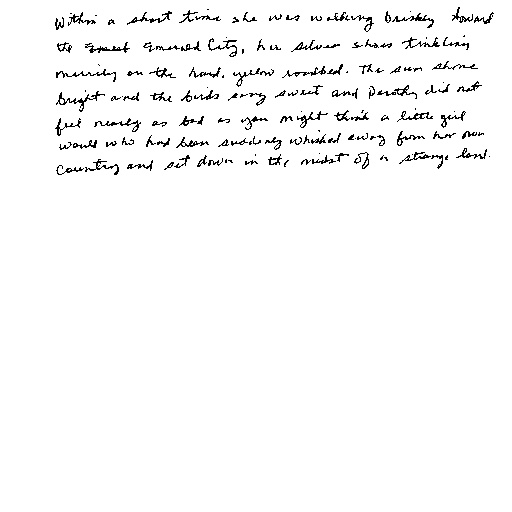 Within a short time she was walking briskly toward
the Emerald City, her silver shoes tinkling
merrily on the hard, yellow roadbed. The sun shone
bright and the birds sang sweet and Dorothy did not
feel nearly as bad as you might think a little girl
would who had been suddenly whisked away from her own
country and set down in the midst of a strange land.